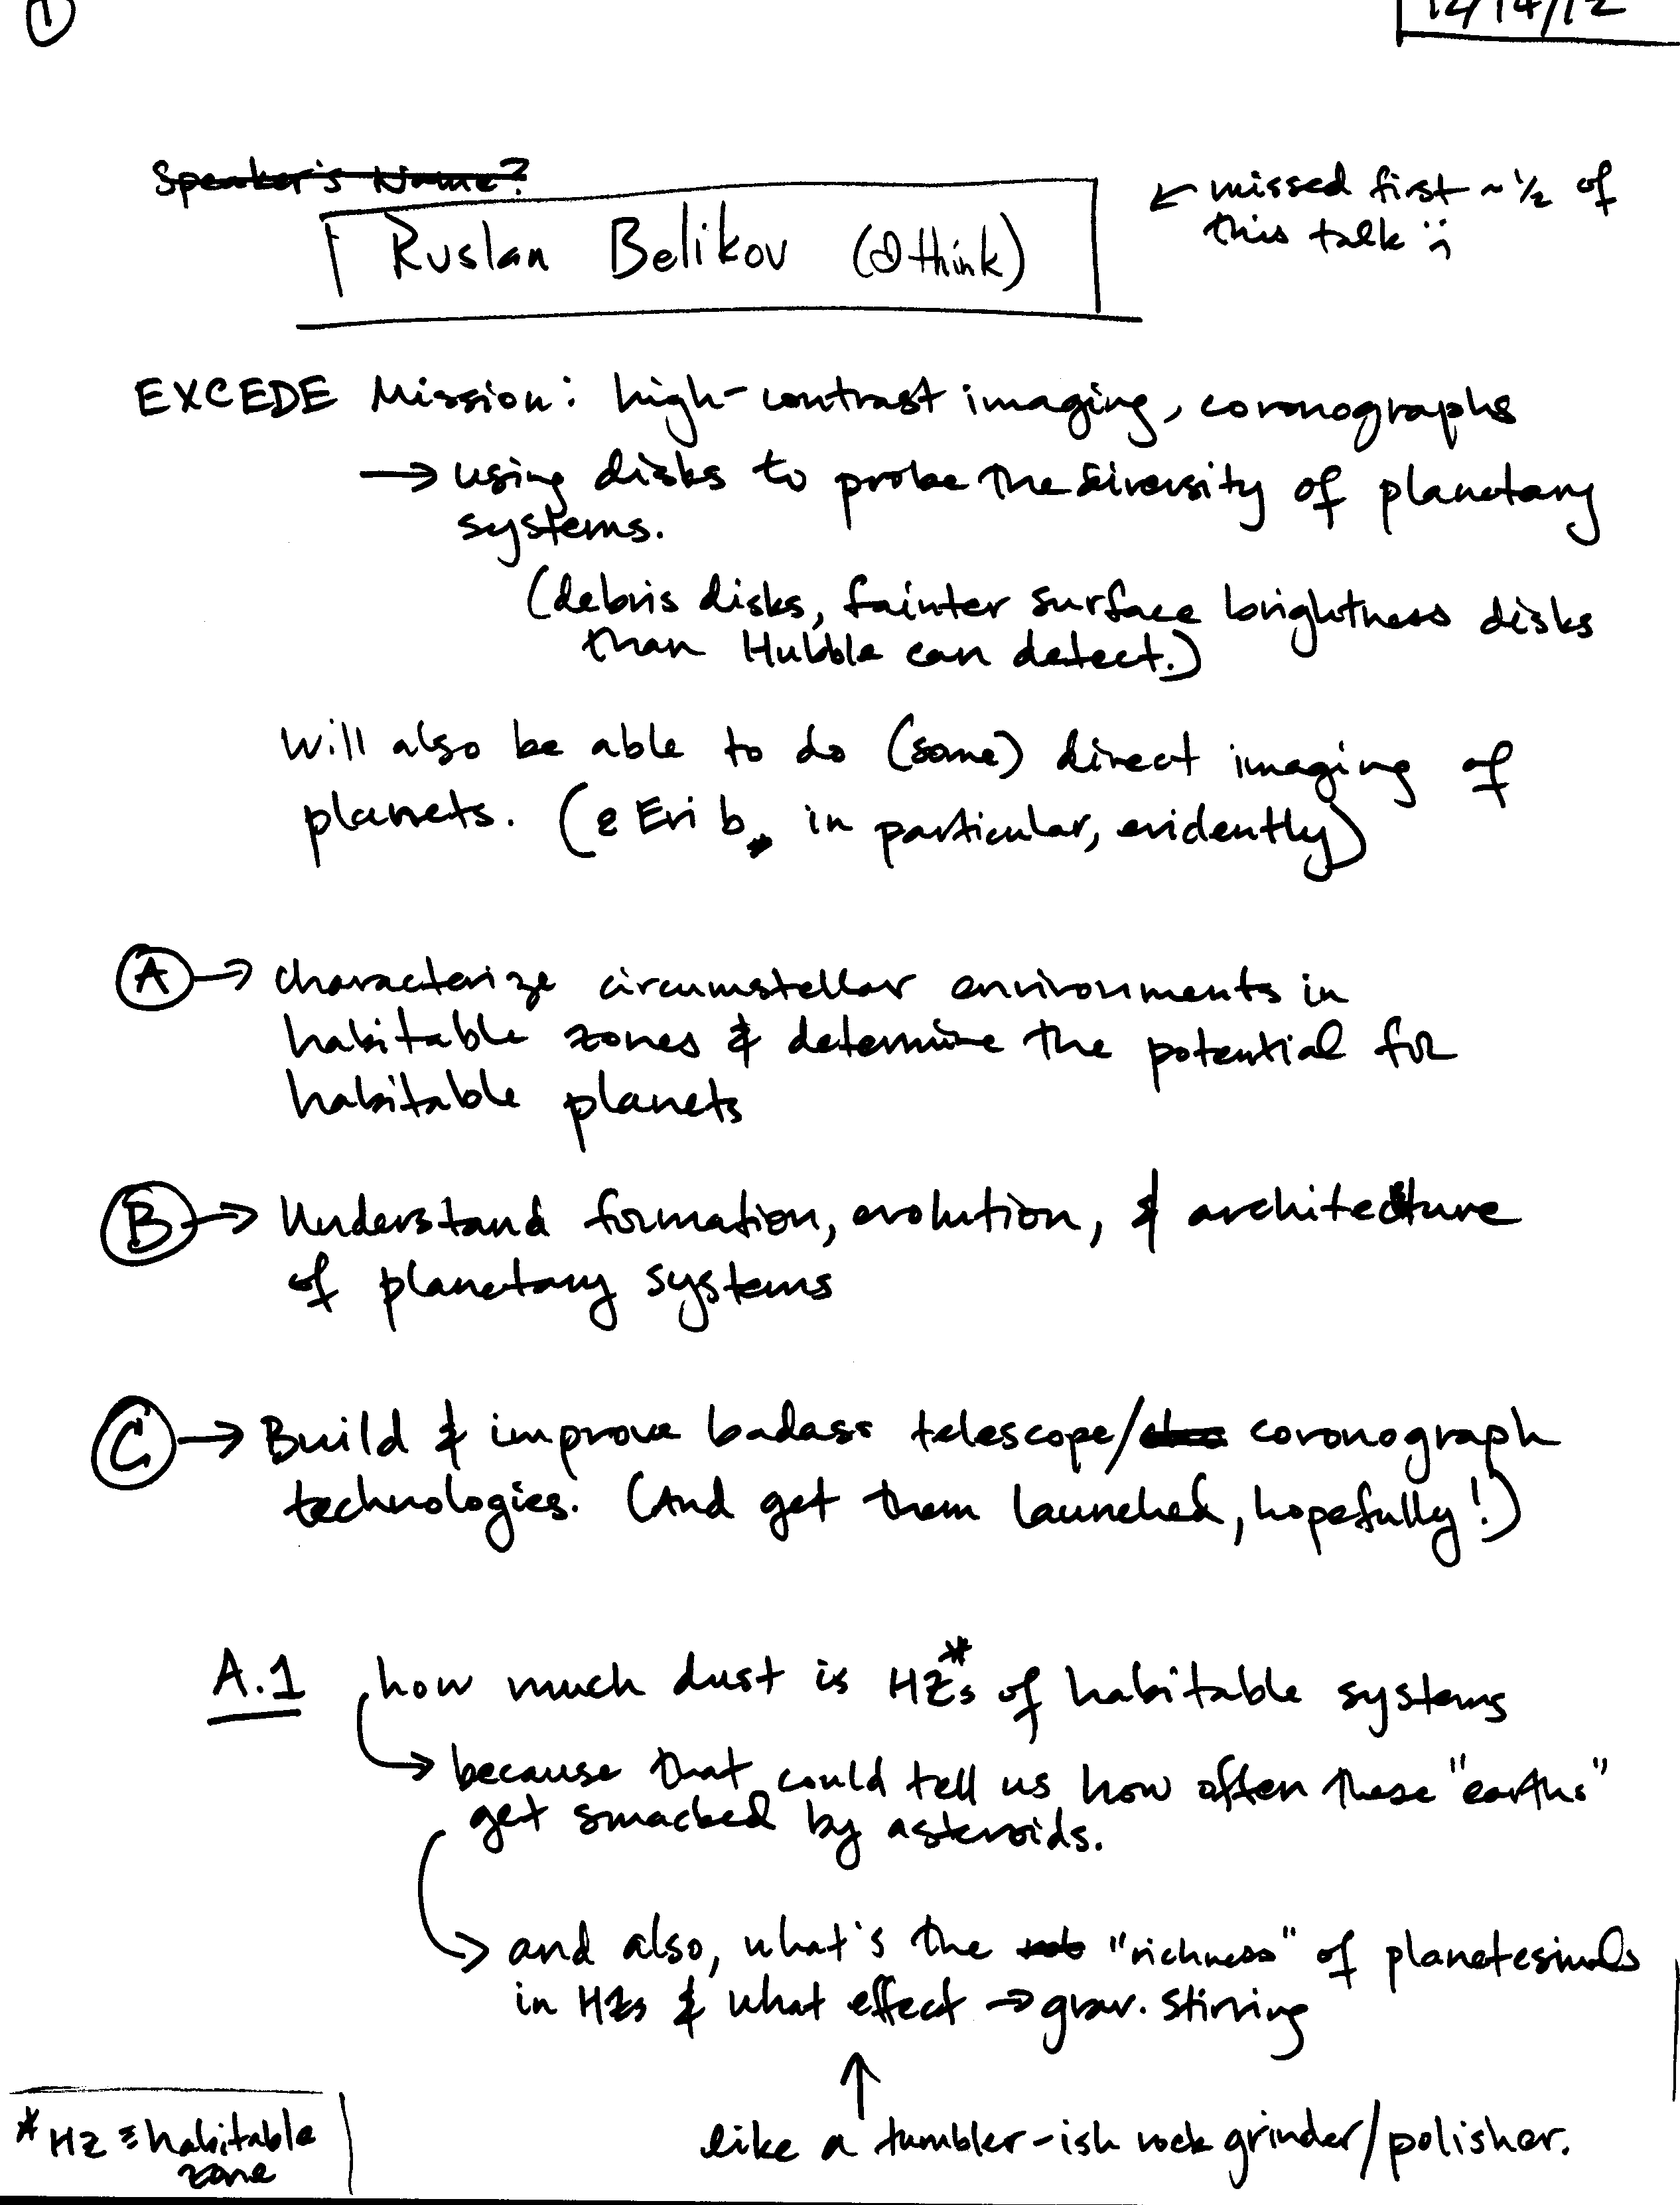 ①
12/14/12
Speaker's Name?
Ruslan Belikov (I think)
← missed first ~ 1/2 of
this talk :(
EXCEDE Mission: high-contrast imaging, coronographs
→ using disks to probe the diversity of planetary
systems.
(debris disks, fainter surface brightness disks
than Hubble can detect.)
Will also be able to do (some) direct imaging of
planets. (ε Eri b, in particular, evidently)
Ⓐ → characterize circumstellar environments in
habitable zones & determine the potential for
habitable planets
Ⓑ → Understand formation, evolution, & architecture
of planetary systems
Ⓒ → Build & improve badass telescope/ coronograph
technologies. (And get them launched, hopefully!)
A.1 how much dust is HZs* of habitable systems
→ because that could tell us how often these "earths"
get smacked by asteroids.
→ and also, what's the "richness" of planetesimals
in HZs & what effect → grav. stirring
↑
like a tumbler-ish rock grinder/polisher.
* HZ ≡ habitable
zone